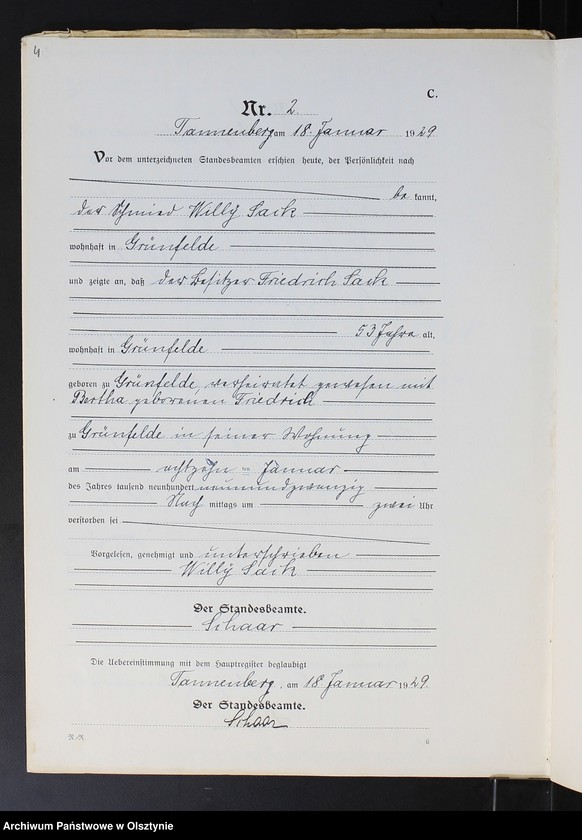 4
C.
Nr. 2.
Tannenberg am 18. Januar 1929
Vor dem unterzeichneten Standesbeamten erschien heute, der Persönlichkeit nach
be kannt,
der Schmied Willy Sack
wohnhaft in Grünfelde
und zeigte an, daß der Besitzer Friedrich Sack
53 Jahre alt,
wohnhaft in Grünfelde
geboren zu Grünfelde, verheiratet gewesen mit
Bertha geborenen Friedrich
zu Grünfelde in seiner Wohnung
am achtzehn ten Januar
des Jahres tausend neunhundert neunundzwanzig
Nach mittags um zwei Uhr
verstorben sei
Vorgelesen, genehmigt und unterschrieben
Willy Sack
Der Standesbeamte.
Schaar
Die Uebereinstimmung mit dem Hauptregister beglaubigt
Tannenberg, am 18. Januar 1929.
Der Standesbeamte.
Schaar
N.-R.
6
Archiwum Państwowe w Olsztynie